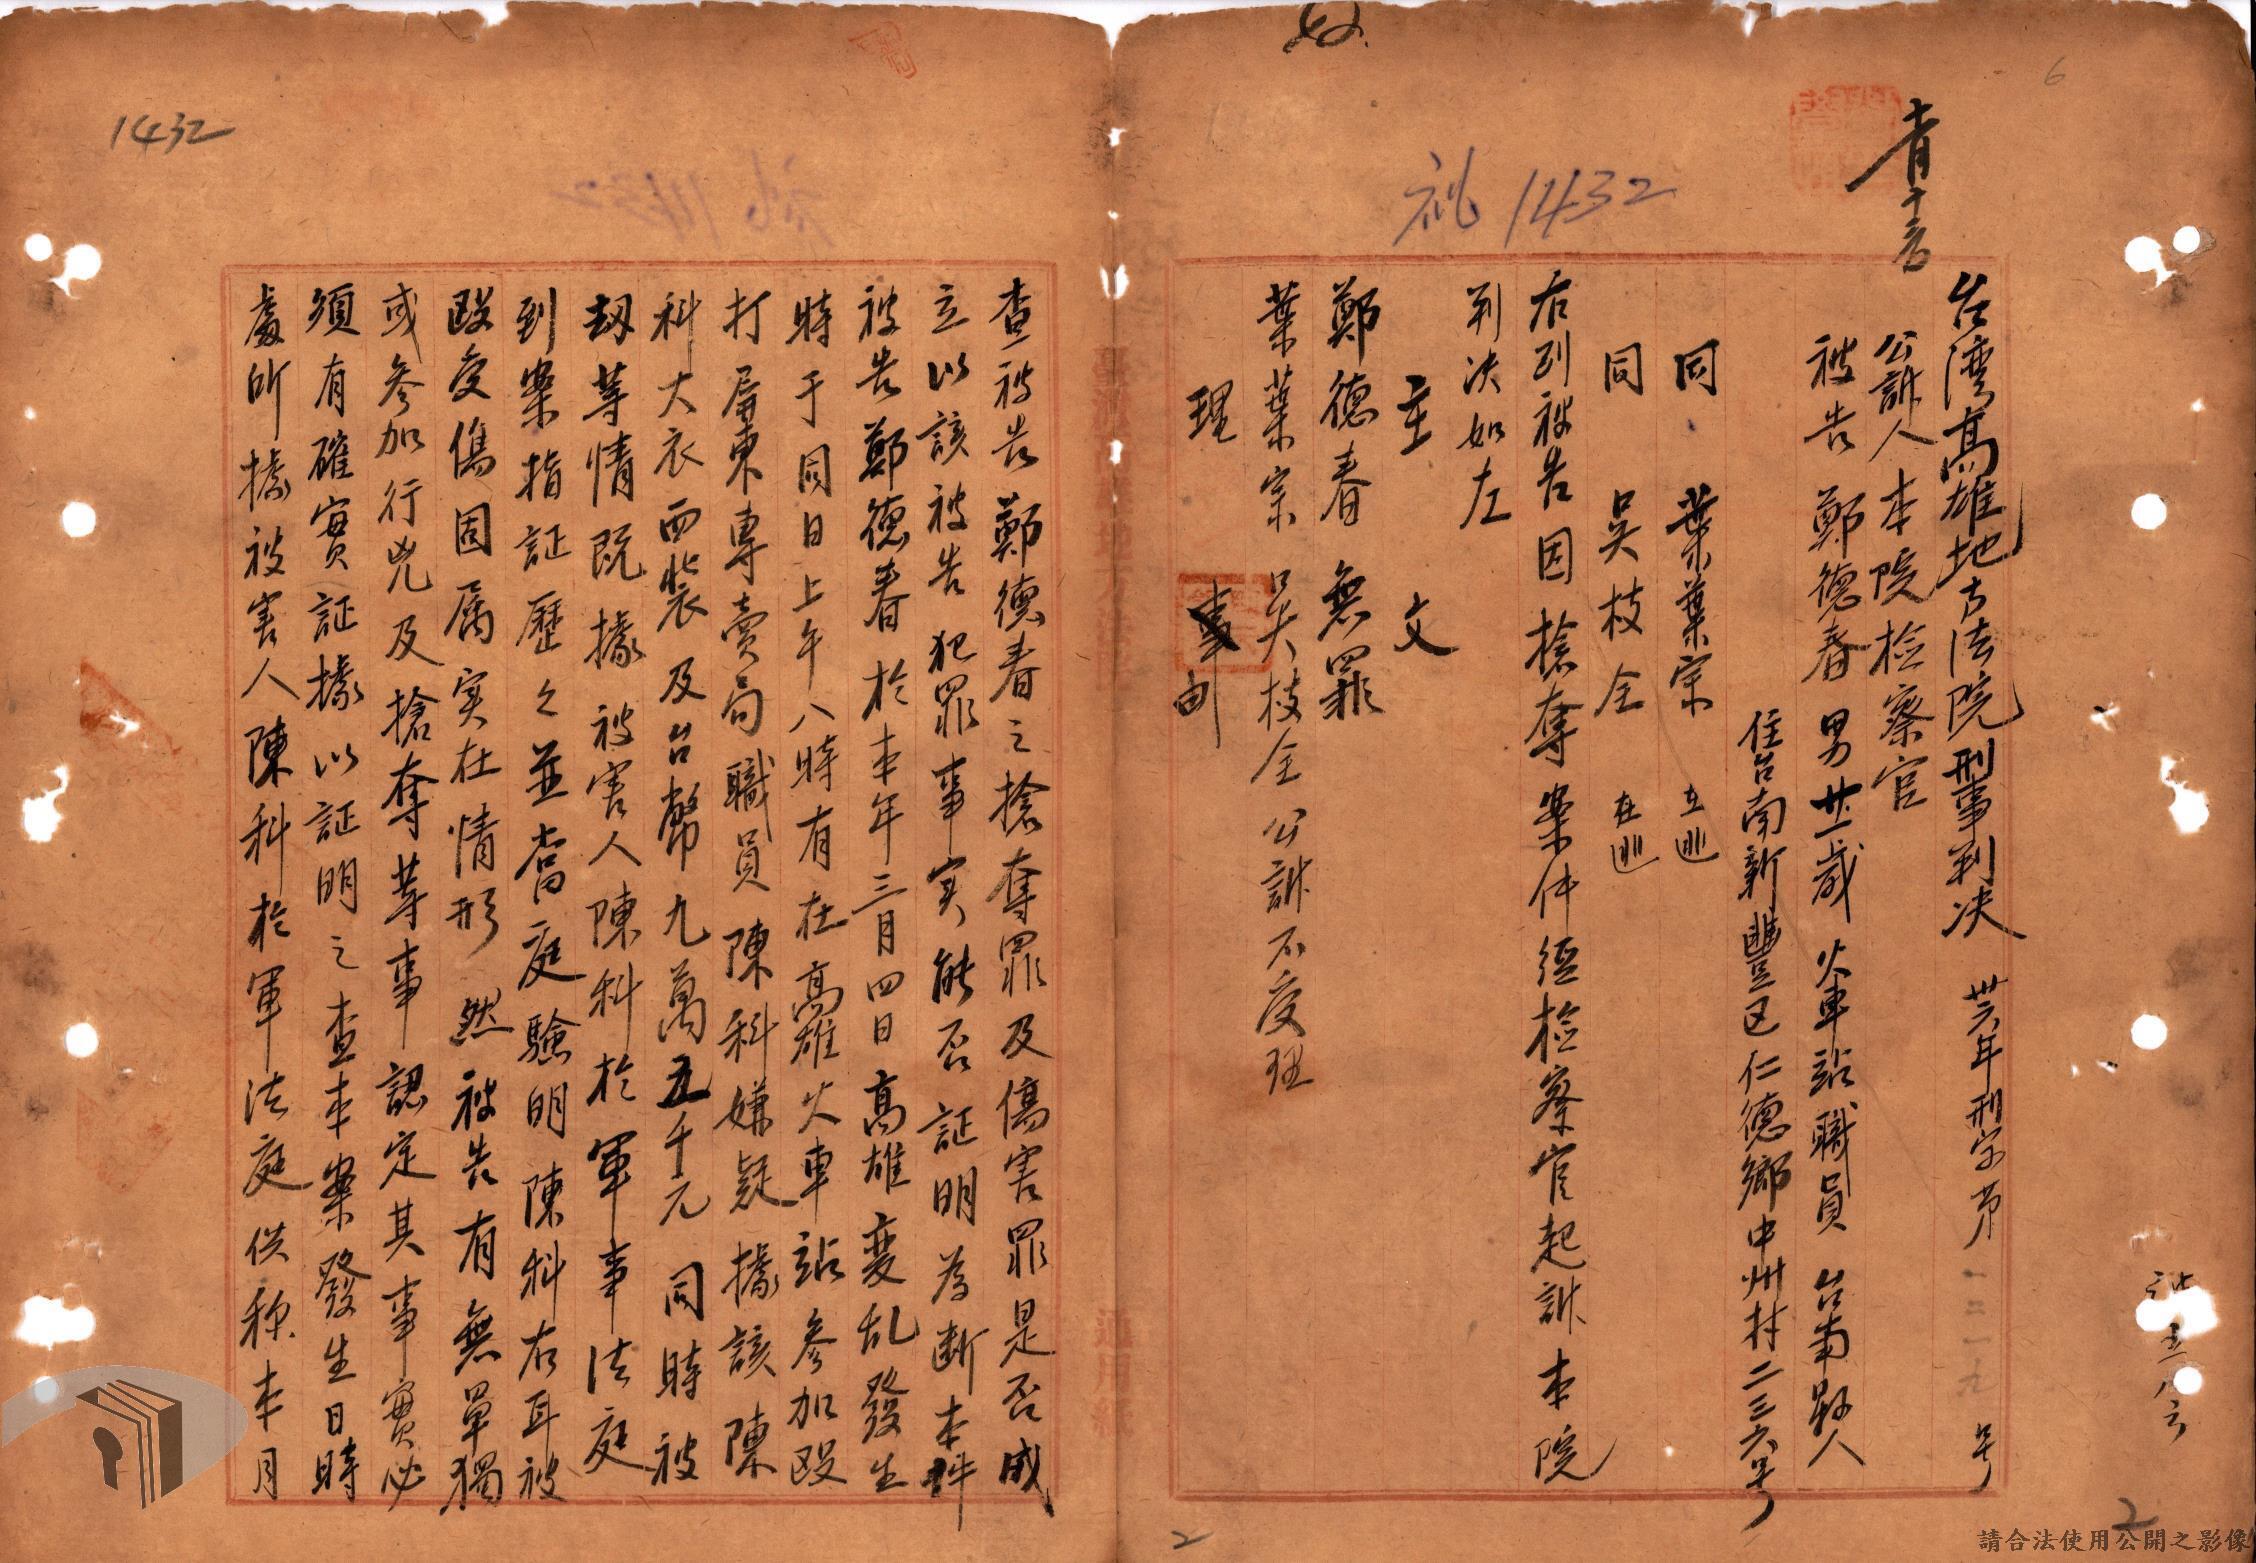 台湾高雄地方法院刑事判决 卅六年刑字第一二一九号
公訴人本院检察官
被告 鄭德春 男 廿一歲 火車站職員 台南縣人
住台南新豐区仁德鄉中州村二三六号
同 葉葉宗 在逃
同 吳枝全 在逃
右列被告因搶奪案件經检察官起訴本院
判決如左
主文
鄭德春無罪
葉葉宗 吳枝全公訴不受理
理由
查被告鄭德春之搶奪罪及傷害罪是否成
立以該被告犯罪事实能否証明為断本件
被告鄭德春於本年三月四日高雄变乱發生
時于同日上午八時有在高雄火車站參加毆
打屏東專賣局職員陳科嫌疑據該陳
科大衣西裝及台幣九萬五千元同時被
刼等情既據被害人陳科於軍事法庭
到案指証歷々並當庭驗明陳科右耳被
毆受傷固属实在情形然被告有無單獨
或參加行兇及搶奪等事認定其事實必
須有確實証據以証明之查本案發生日時
處所據被害人陳科於軍法庭供称本月
1432
1432
6
2
2
請合法使用公開之影像